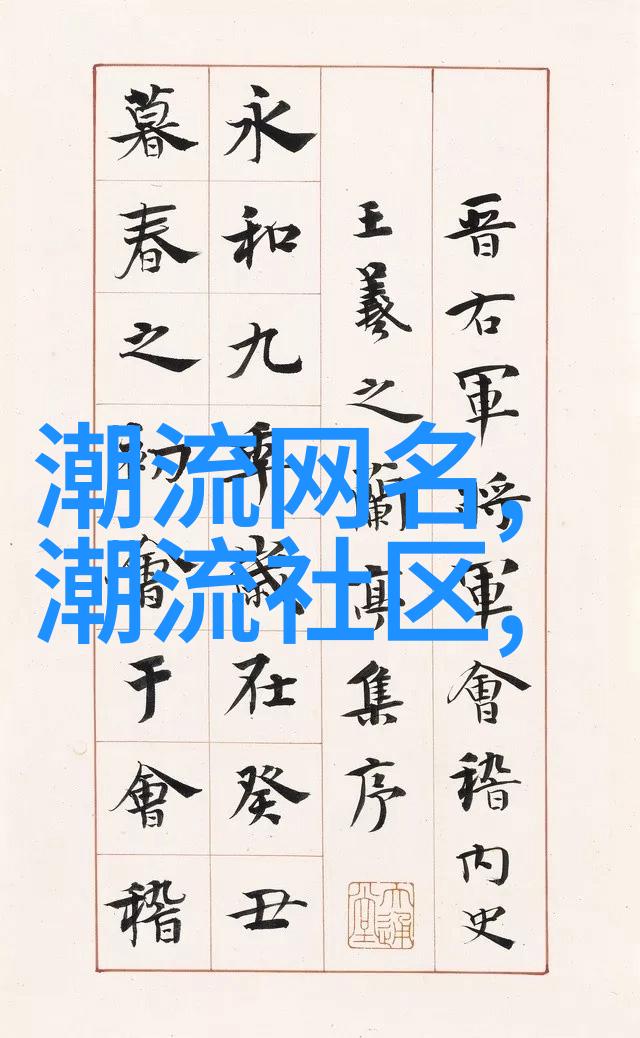 晋右軍将軍會稽内史
王羲之蘭亭集序
永和九年歲在癸丑
暮春之初會于會稽
潮流网名,
潮流社区,